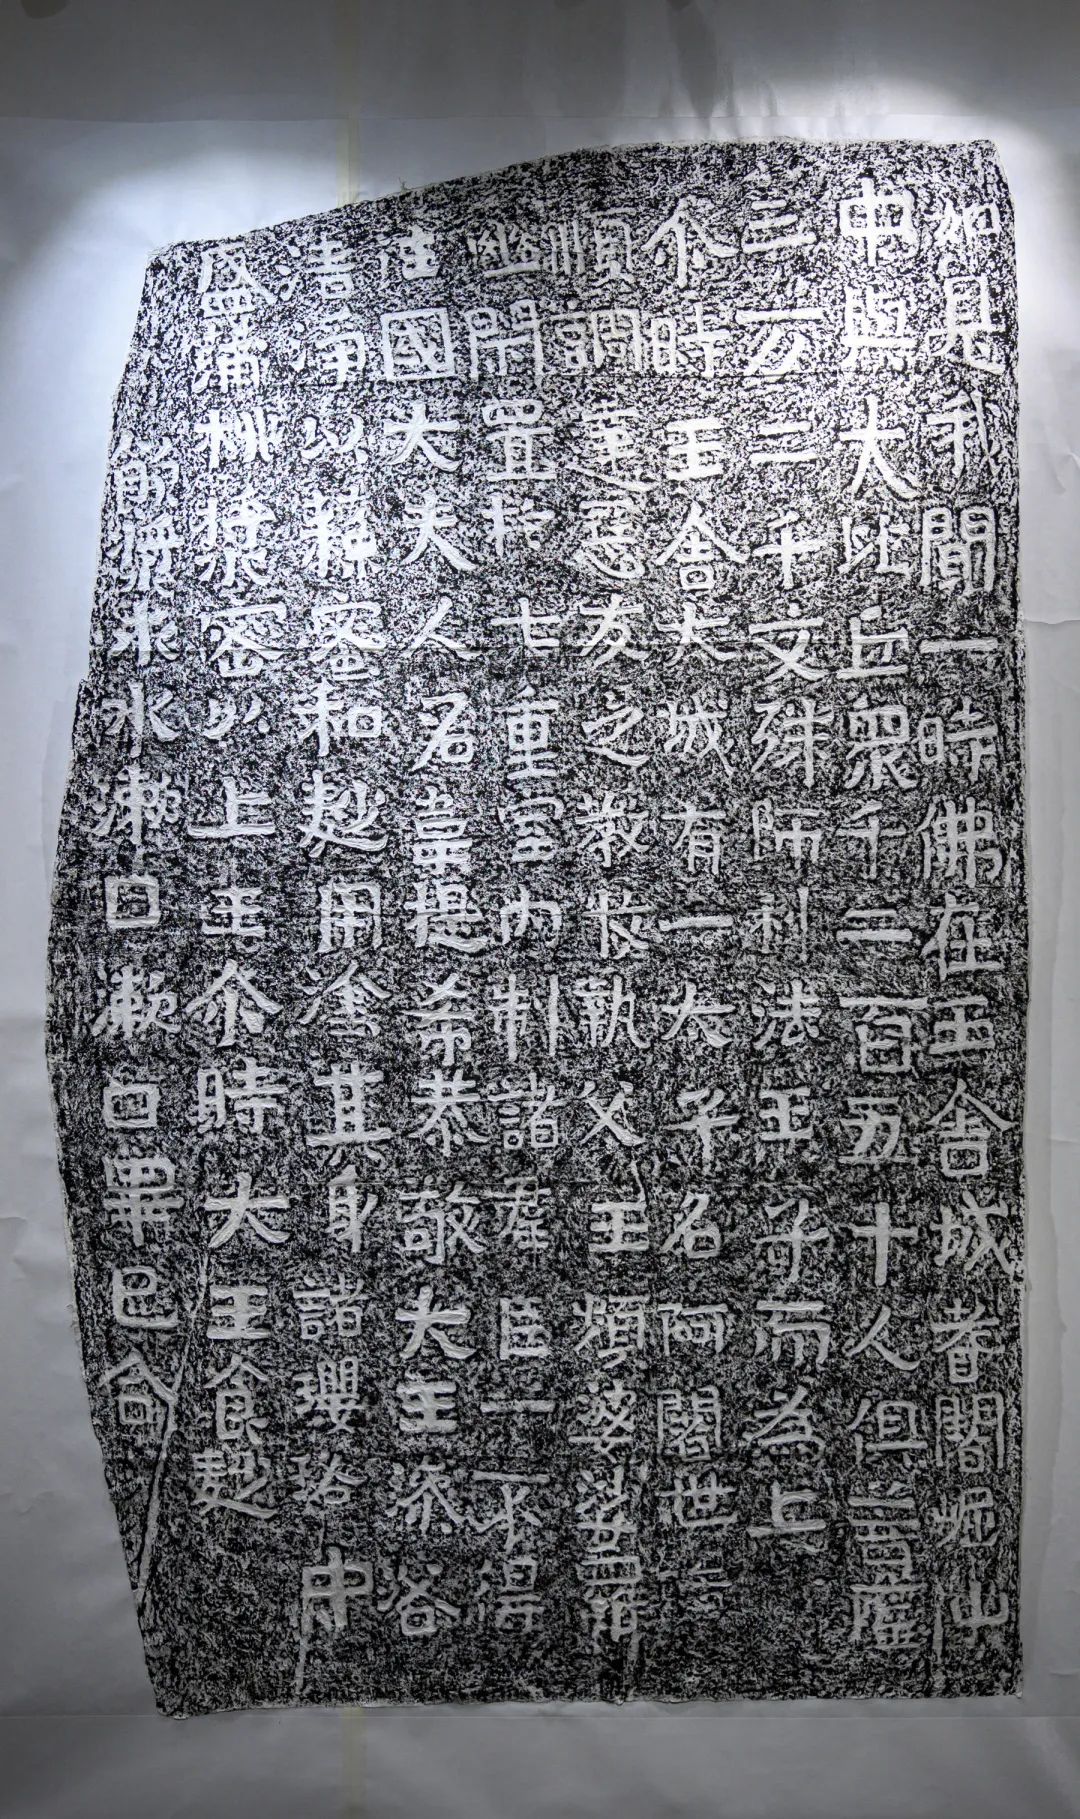 如是我聞一時佛在王舍城耆闍崛山
中與大比丘眾千二百五十人俱菩薩
三万二千文殊師利法王子而為上
尒時王舍大城有一太子名阿闍世
順調達惡友之教收執父王頻婆娑羅
幽閉置於七重室內制諸群臣一不得
往國大夫人名韋提希恭敬大王澡浴
清淨以酥蜜和麨用塗其身諸瓔珞中
盛蒲桃漿密以上王尒時大王食麨
飲漿求水漱口漱口畢已合